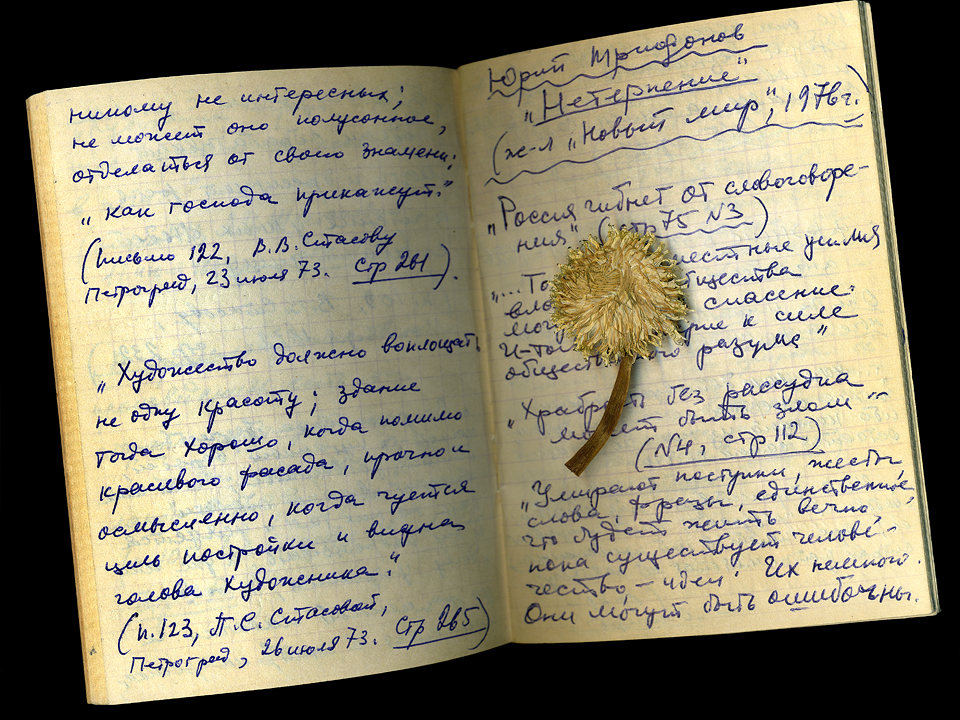 никому не интересных;
не может оно полусонное,
отделаться от своего знамени:
„Как господа прикажут."
(письмо 122, В.В. Стасову
Петроград, 23 июля 73. стр 261).
„Художество должно воплощать
не одну красоту; здание
тогда хорошо, когда помимо
красивого фасада, прочно и
осмысленно, когда чуется
цель постройки и видна
голова художника."
(п. 123, П.С. Стасовой,
Петроград, 26 июля 73. стр 265)
Юрий Трифонов
„Нетерпение"
(ж-л „Новый мир", 1976г.)
„Россия гибнет от словоговоре-
ния" (стр 75 N3)
„...То усилия
общества
спасение:
к силе
общест го разума"
„Храбр ть без рассудка
может быть злом"
(N4, стр 112)
„Умирают поступки, жесты,
слова, фразы, единственное,
что будет жить вечно,
пока существует челове-
чество, – идеи. Их немного.
Они могут быть ошибочны.